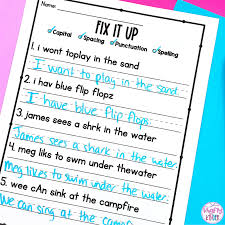 Name:
FIX IT UP
Capital Spacing Punctuation Spelling
1. i wont toplay in the sand
I want to play in the sand.
2. i hav blue flip flopz
I have blue flip flops.
3. james sees a shrk in the water
James sees a shark in the water.
4. meg liks to swim under thewater
Meg likes to swim under the water.
5. wee cAn sing at the campfire
We can sing at the